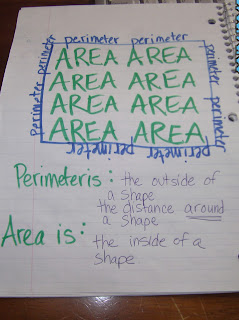 perimeter perimeter
Perimeter perimeter
perimeter perimeter
AREA AREA
AREA AREA
AREA AREA
AREA AREA
perimeter perimeter
Perimeter is: the outside of
a shape
the distance around
a shape
Area is: the inside of a
shape